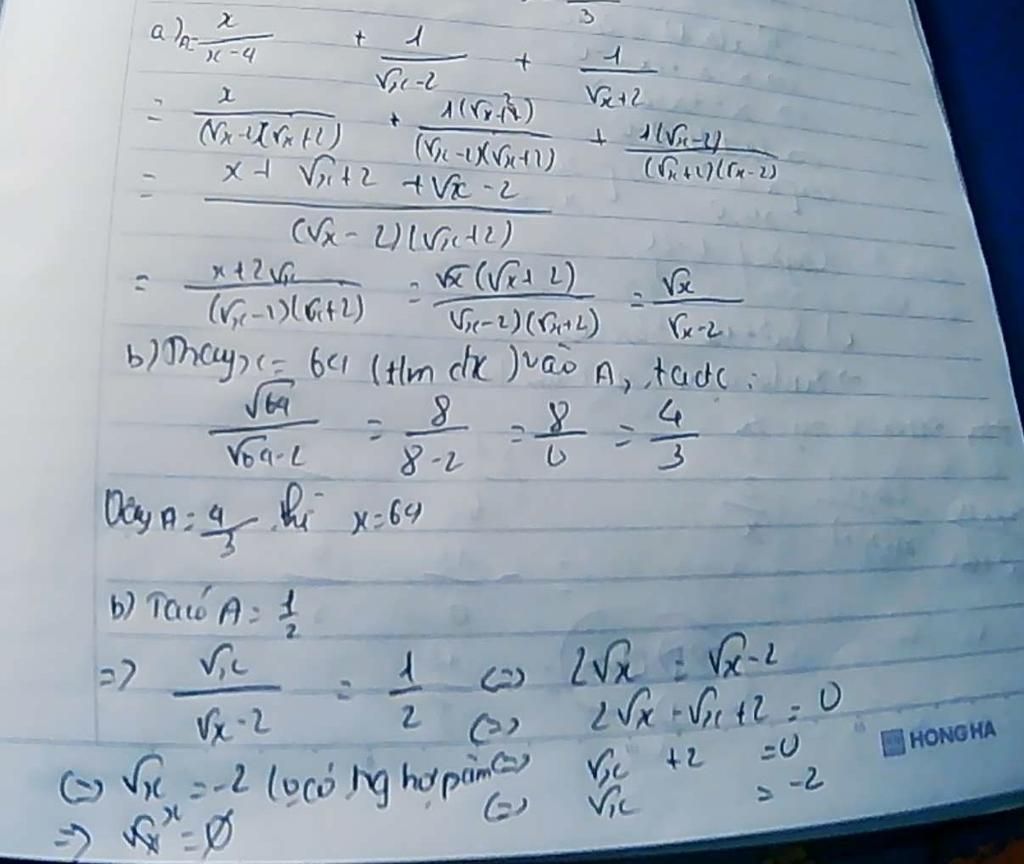 3
a) A = x/(x-4) + 1/(√x-2) + 1/(√x+2)
= x/((√x-2)(√x+2)) + 1(√x+2)/((√x-2)(√x+2)) + 1(√x-2)/((√x+2)(√x-2))
= (x + √x+2 + √x-2)/((√x-2)(√x+2))
= (x+2√x)/((√x-2)(√x+2)) = √x(√x+2)/(√x-2)(√x+2) = √x/(√x-2)
b) Thay x = 64 (tlm đk) vào A, ta đc:
√64/(√64-2) = 8/(8-2) = 8/6 = 4/3
Vậy A = 4/3 khi x = 64
b) Ta có A = 1/2
=> √x/(√x-2) = 1/2 <=> 2√x = √x-2
<=> 2√x - √x + 2 = 0
<=> √x + 2 = 0
<=> √x = -2
<=> √x = -2 ( có ng hợp
=> x = ∅
HONG HA